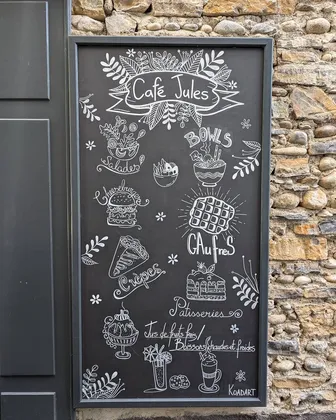 Café Jules
BOWLS
Salades
Burgers
GAUFRES
Crêpes
Pâtisseries
Jus de fruits frais /
Boissons chaudes et froides
KOADART